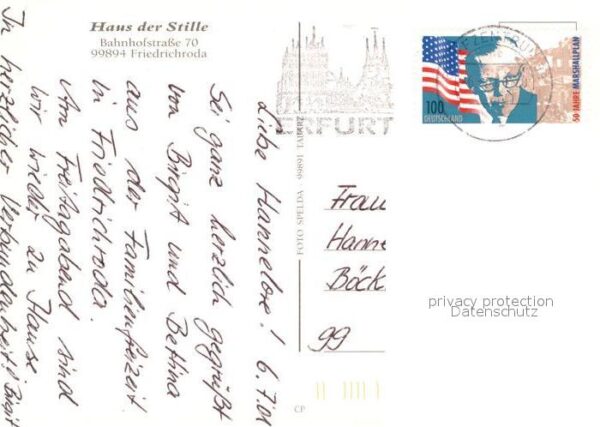 Haus der Stille
Bahnhofstraße 70
99894 Friedrichroda
Liebe Hannelore! 6.7.01
Sei ganz herzlich gegrüßt
von Birgit und Bettina
aus der Familienfreizeit
in Friedrichroda.
Am Freitagabend sind
wir wieder zu Hause.
In herzlicher Verbundenheit! Birgit
FOTO SPELDA 99891 TABARZ
CP
ERFURT
100
DEUTSCHLAND
50 JAHRE MARSHALLPLAN
Frau
Hanne
Böck
99
privacy protection
Datenschutz